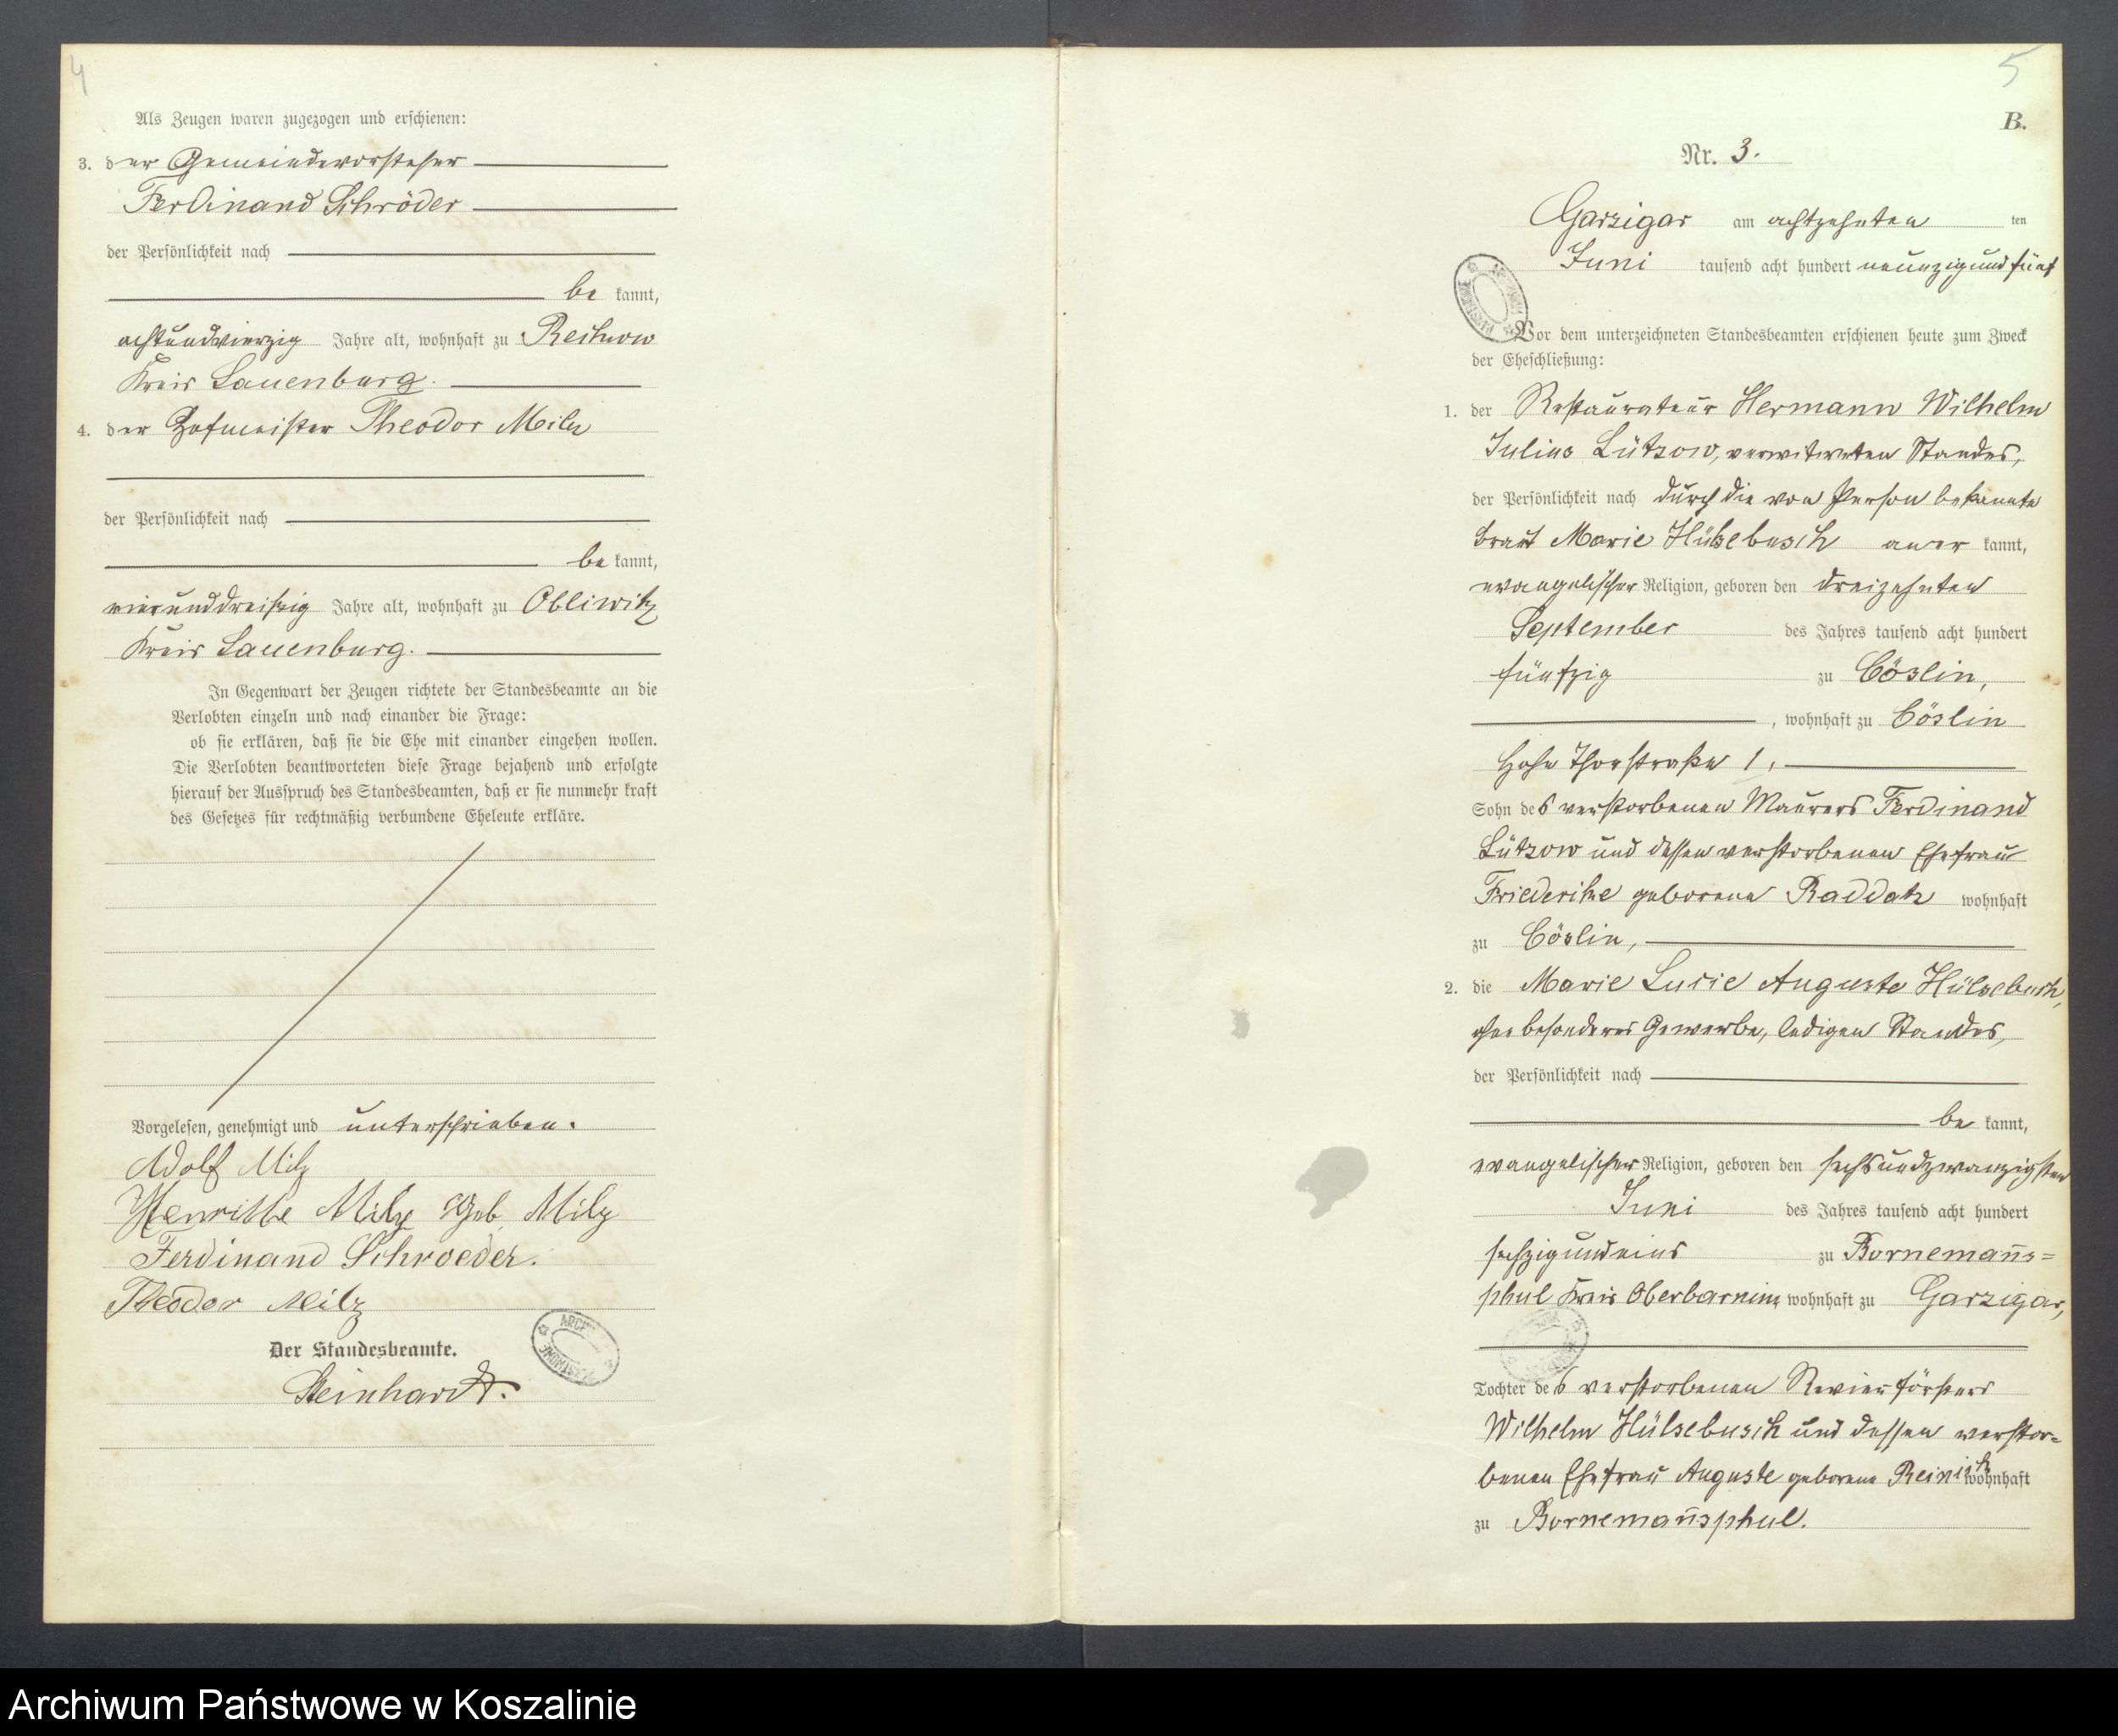 4
Als Zeugen waren zugezogen und erschienen:
3. der Gemeindevorsteher
Ferdinand Schröder
der Persönlichkeit nach
be kannt,
achtundvierzig Jahre alt, wohnhaft zu Reckow
Kreis Lauenburg.
4. der Hofmeister Theodor Milz
der Persönlichkeit nach
be kannt,
vierunddreißig Jahre alt, wohnhaft zu Obliwitz
Kreis Lauenburg.
In Gegenwart der Zeugen richtete der Standesbeamte an die
Verlobten einzeln und nach einander die Frage:
ob sie erklären, daß sie die Ehe mit einander eingehen wollen.
Die Verlobten beantworteten diese Frage bejahend und erfolgte
hierauf der Ausspruch des Standesbeamten, daß er sie nunmehr kraft
des Gesetzes für rechtmäßig verbundene Eheleute erkläre.
Vorgelesen, genehmigt und unterschrieben.
Adolf Milz
Henriette Milz geb. Milz
Ferdinand Schroeder.
Theodor Milz
Der Standesbeamte.
Steinhardt.
5
B.
Nr. 3.
Garzigar am achtzehnten ten
Juni tausend acht hundert neunzig und fünf
Vor dem unterzeichneten Standesbeamten erschienen heute zum Zweck
der Eheschließung:
1. der Restaurateur Hermann Wilhelm
Julius Lützow, verwitweten Standes,
der Persönlichkeit nach durch die von Person bekannte
Braut Marie Hülsebusch aner kannt,
evangelischer Religion, geboren den dreizehnten
September des Jahres tausend acht hundert
fünfzig zu Cöslin,
, wohnhaft zu Cöslin
Hohe Thorstraße 1,
Sohn des verstorbenen Maurers Ferdinand
Lützow und dessen verstorbenen Ehefrau
Friederike geborene Raddatz wohnhaft
zu Cöslin,
2. die Marie Lucie Auguste Hülsebusch,
ohne besonderes Gewerbe, ledigen Standes,
der Persönlichkeit nach
be kannt,
evangelischer Religion, geboren den sechsundzwanzigsten
Juni des Jahres tausend acht hundert
sechzig und eins zu Bornemañs=
phul Kreis Oberbarnim wohnhaft zu Garzigar,
Tochter des verstorbenen Revierförsters
Wilhelm Hülsebusch und dessen verstor=
benen Ehefrau Auguste geborene Reinich wohnhaft
zu Bornemañsphul.
Archiwum Państwowe w Koszalinie